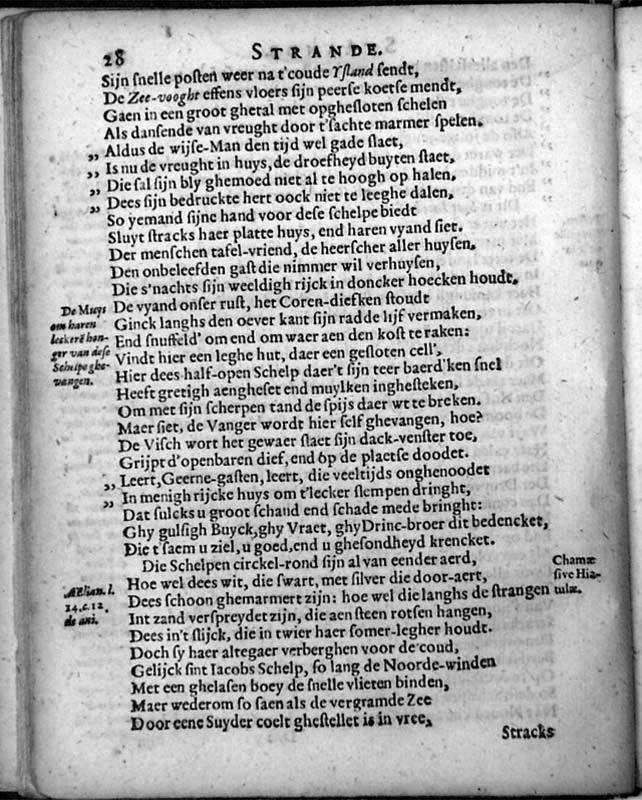 28 STRANDE.
Sijn snelle posten weer na t'coude Ysland sendt,
De Zee-vooght effens vloers sijn peerse koetse mendt,
Gaen in een groot ghetal met opghesloten schelen
Als dansende van vreught door t'sachte marmer spelen.
,, Aldus de wijse-Man den tijd wel gade slaet,
,, Is nu de vreught in huys, de droefheyd buyten staet,
,, Die sal sijn bly ghemoed niet al te hoogh op halen,
,, Dees sijn bedruckte hert oock niet te leeghe dalen,
So yemand sijne hand voor dese schelpe biedt
Sluyt stracks haer platte huys, end haren vyand siet.
Der menschen tafel-vriend, de heerscher aller huysen,
Den onbeleefden gast die nimmer wil verhuysen,
Die s'nachts sijn weeldigh rijck in doncker hoecken houdt,
De vyand onser rust, het Coren-diefken stoudt
Ginck langhs den oever kant sijn radde lijf vermaken,
End snuffeld' om end om waer aen den kost te raken:
Vindt hier een leghe hut, daer een gesloten cell',
Hier dees half-open Schelp daer't sijn teer baerd'ken snel
Heeft gretigh aengheset end muylken inghesteken,
Om met sijn scherpen tand de spijs daer wt te breken.
Maer siet, de Vanger wordt hier self ghevangen, hoe?
De Visch wort het gewaer slaet sijn dack-venster toe,
Grijpt d'openbaren dief, end óp de plaetse doodet.
,, Leert, Geerne-gasten, leert, die veeltijds onghenoodet
,, In menigh rijcke huys om t'lecker slempen dringht,
Dat sulcks u groot schand end schade mede bringht:
Ghy gulsigh Buyck, ghy Vraet, ghy Drinc-broer dit bedencket,
Die t'saem u ziel, u goed, end u ghesondheyd krencket.
Die Schelpen circkel-rond sijn al van eender aerd,
Hoe wel dees wit, die swart, met silver die door-aert,
Dees schoon ghemarmert zijn: hoe wel die langhs de strangen
Int zand verspreydet zijn, die aen steen rotsen hangen,
Dees in't slijck, die in twier haer somer-legher houdt.
Doch sy haer altegaer verberghen voor de coud,
Gelijck sint Iacobs Schelp, so lang de Noorde-winden
Met een ghelasen boey de snelle vlieten binden,
Maer wederom so saen als de vergramde Zee
Door eene Suyder coelt ghestellet is in vree,
Stracks
De Muys
om haren
leckerē hon-
ger van dese
Schelpe ghe-
vangen.
Ælian. l.
14. c. 12.
de ani.
Chamæ
sive Hia-
tulæ.